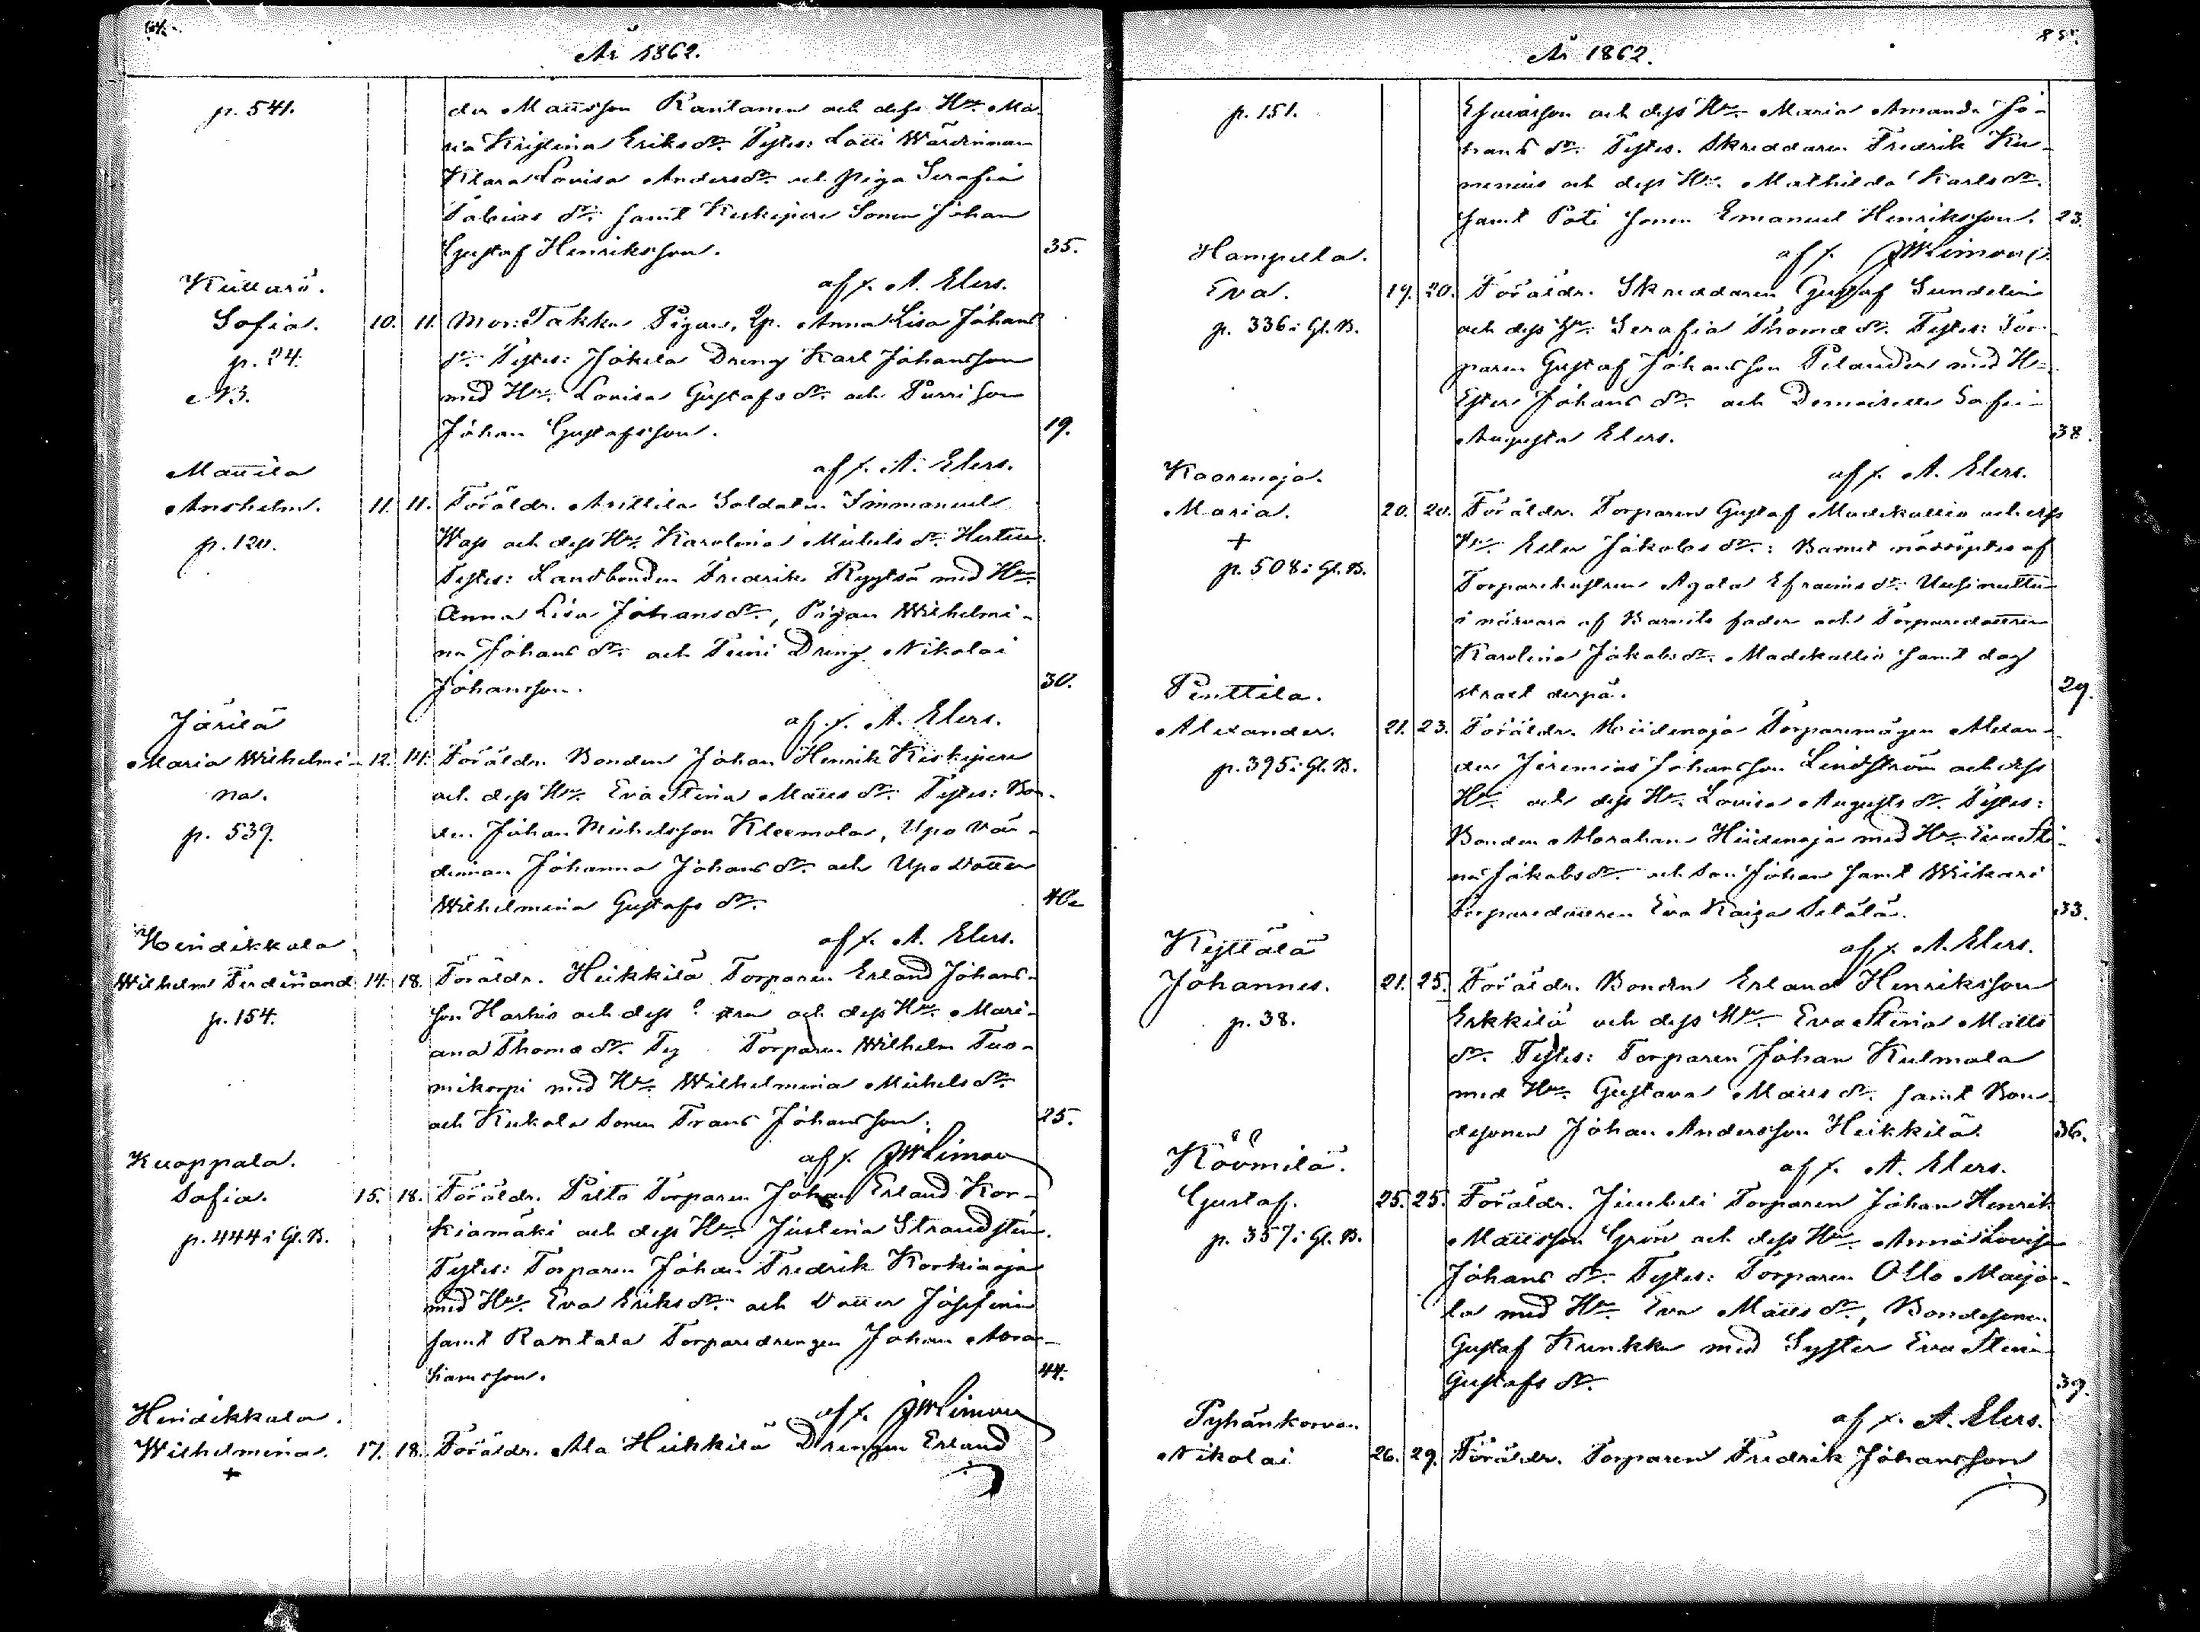 84.
År 1862.
p. 541.
der Mattsson Rantanen och dess Hu. Ma-
ria Kristina Eriks dr. Testes: Lätti Wärdinnan
Klara Lovisa Andersdr. och Piga Serafia
Tobias dr. samt Keskipere Sonen Johan
Gustaf Henriksson. 35.
af f. A. Elers.
Sofia. 10. 11. Mor: Takku Pigan, Ip. Anna Lisa Johans
p. 24. dr. Testes: Jokela Dreng Karl Johansson
NB. med Hu. Lovisa Gustafs dr. och Purri Son
Johan Gustafsson. 19.
Mattila af f. A. Elers.
Anshelm. 11. 11. Föräldr. Anttila Soldaten Immanuel
p. 120. Wass och dess Hu. Karolina Michels dr. Herttu.
Testes: Landbonden Fredrik Ryytsä med Hu.
Anna Lisa Johansdr., Pigan Wilhelmi-
na Johans dr. och Dreng Nikolai
Johansson. 30.
Järilä af f. A. Elers.
Maria Wilhelmi- 12. 14. Föräldr. Bonden Johan Henrik Keskipere
na. och dess Hu. Eva Stina Matts dr. Testes: Bon-
p. 539. den Johan Michelsson Kleemola, Upo Vär-
dinnan Johanna Johans dr. och Upo dotter
Wilhelmina Gustafs dr. 40.
Heinikkala af f. A. Elers.
Wilhelm Ferdinand 14. 18. Föräldr. Heikkilä Torparen Erland Johans-
p. 154. son Harhio och dess ? och dess Hu. Mari-
ana Thomæ dr. Torparen Wilhelm Tuo-
mikorpi med Hu. Wilhelmina Michels dr.
och Kukola Sonen Frans Johansson. 25.
Kuoppala. af f. JWLimon
Sofia. 15. 18. Föräldr. Pelto Torparen Johan Erland Kor-
p. 444 i Gl. B. kiamäki och dess Hu. Justina Strandsten.
Testes: Torparen Johan Fredrik Korkiaoja
med Hu. Eva Eriks dr. och dotter Josefina
samt Rantala Torparedrengen Johan Abra-
hamsson. 44.
Heinikkala. af f. JWLimon
Wilhelmina. 17. 18. Föräldr. Ala Heikkilä Drengen Erland
+
85.
År 1862.
p. 151. Esaiasson och dess Hu. Maria Amanda Jo-
hans dr. Testes. Skreddaren Fredrik Ku-
menius och dess Hu. Mathilda Karls dr.
samt Poti Sonen Emanuel Henriksson. 23.
Hampula. af f. JWLimon
Eva. 19. 20. Föräldr. Skreddaren Gustaf Sundelin
p. 336 i Gl. B. och dess Hu. Serafia Thomæ dr. Testes: Tor-
paren Gustaf Johansson Pelander med H-
Ester Johans dr. och Demoiselle Sofia
Augusta Elers. 38.
Kaarnoja. af f. A. Elers.
Maria. 20. 20. Föräldr. Torparen Gustaf Madekallio och dess
+ Hu. Jakobs dr.: Barnet nöddöptes af
p. 508 i Gl. B. Torparehustrun Agata Efraims dr.
i närvaro af Barnets fader och Torparedottren
Karolina Jakobs dr. Madekallio samt dog
straxt derpå. 29.
Penttila.
Alexander. 21. 23. Föräldr. Hiidenoja Torparemågen Alexan-
p. 395 i Gl. B. der Jeremias Johansson Lindström och dess
Hu. och dess Hu. Lovisa Augusts dr. Testes:
Bonden Abraham Hiidenoja med Hu. Eva Sti-
na Jakobs dr. och Son Johan samt Wikari
Torparedottren Eva Kaisa Setälä. 33.
Kyttälä af f. A. Elers.
Johannes. 21. 25. Föräldr. Bonden Erland Henriksson
p. 38. Erkkilä och dess Hu. Eva Stina Matts
dr. Testes: Torparen Johan Kulmala
med Hu. Gustava Matts dr. samt Bon-
desonen Johan Andersson Heikkilä. 36.
Kövmilä. af f. A. Elers.
Gustaf. 25. 25. Föräldr. Torparen Johan Henrik
p. 357 i Gl. B. Mattsson Grön och dess Hu. Anna Lovisa
Johans dr. Testes: Torparen Otto Maijo-
la med Hu. Eva Matts dr., Bondesonen
Gustaf Krunkku med Syster Eva Stina
Gustafs dr. 39.
Pyhänkorva. af f. A. Elers.
Nikolai 26. 29. Föräldr. Torparen Fredrik Johansson